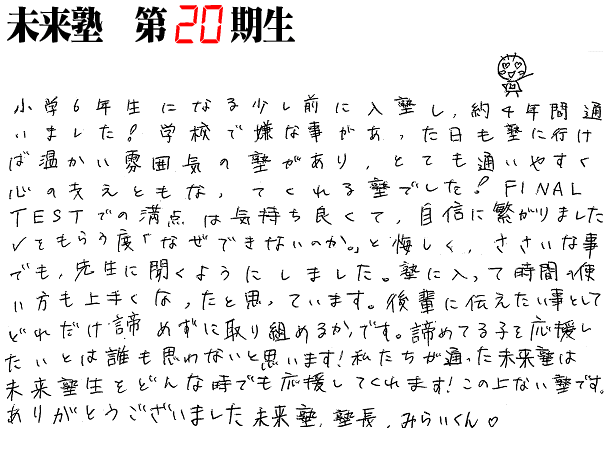 未来塾 第20期生
小学6年生になる少し前に入塾し、約4年間通
いました！学校で嫌な事があった日も塾に行け
ば温かい雰囲気の塾があり、とても通いやすく
心の支えともなってくれる塾でした！FINAL
TESTでの満点は気持ち良くて、自信に繋がりました
✓をもらう度「なぜできないのか。」と悔しく、ささいな事
でも、先生に聞くようにしました。塾に入って時間の使
い方も上手くなったと思っています。後輩に伝えたい事として
どれだけ諦めずに取り組めるかです。諦めてる子を応援し
たいとは誰も思わないと思います！私たちが通った未来塾は
未来塾生をどんな時でも応援してくれます！この上ない塾です。
ありがとうございました未来塾、塾長、みらいくん♡